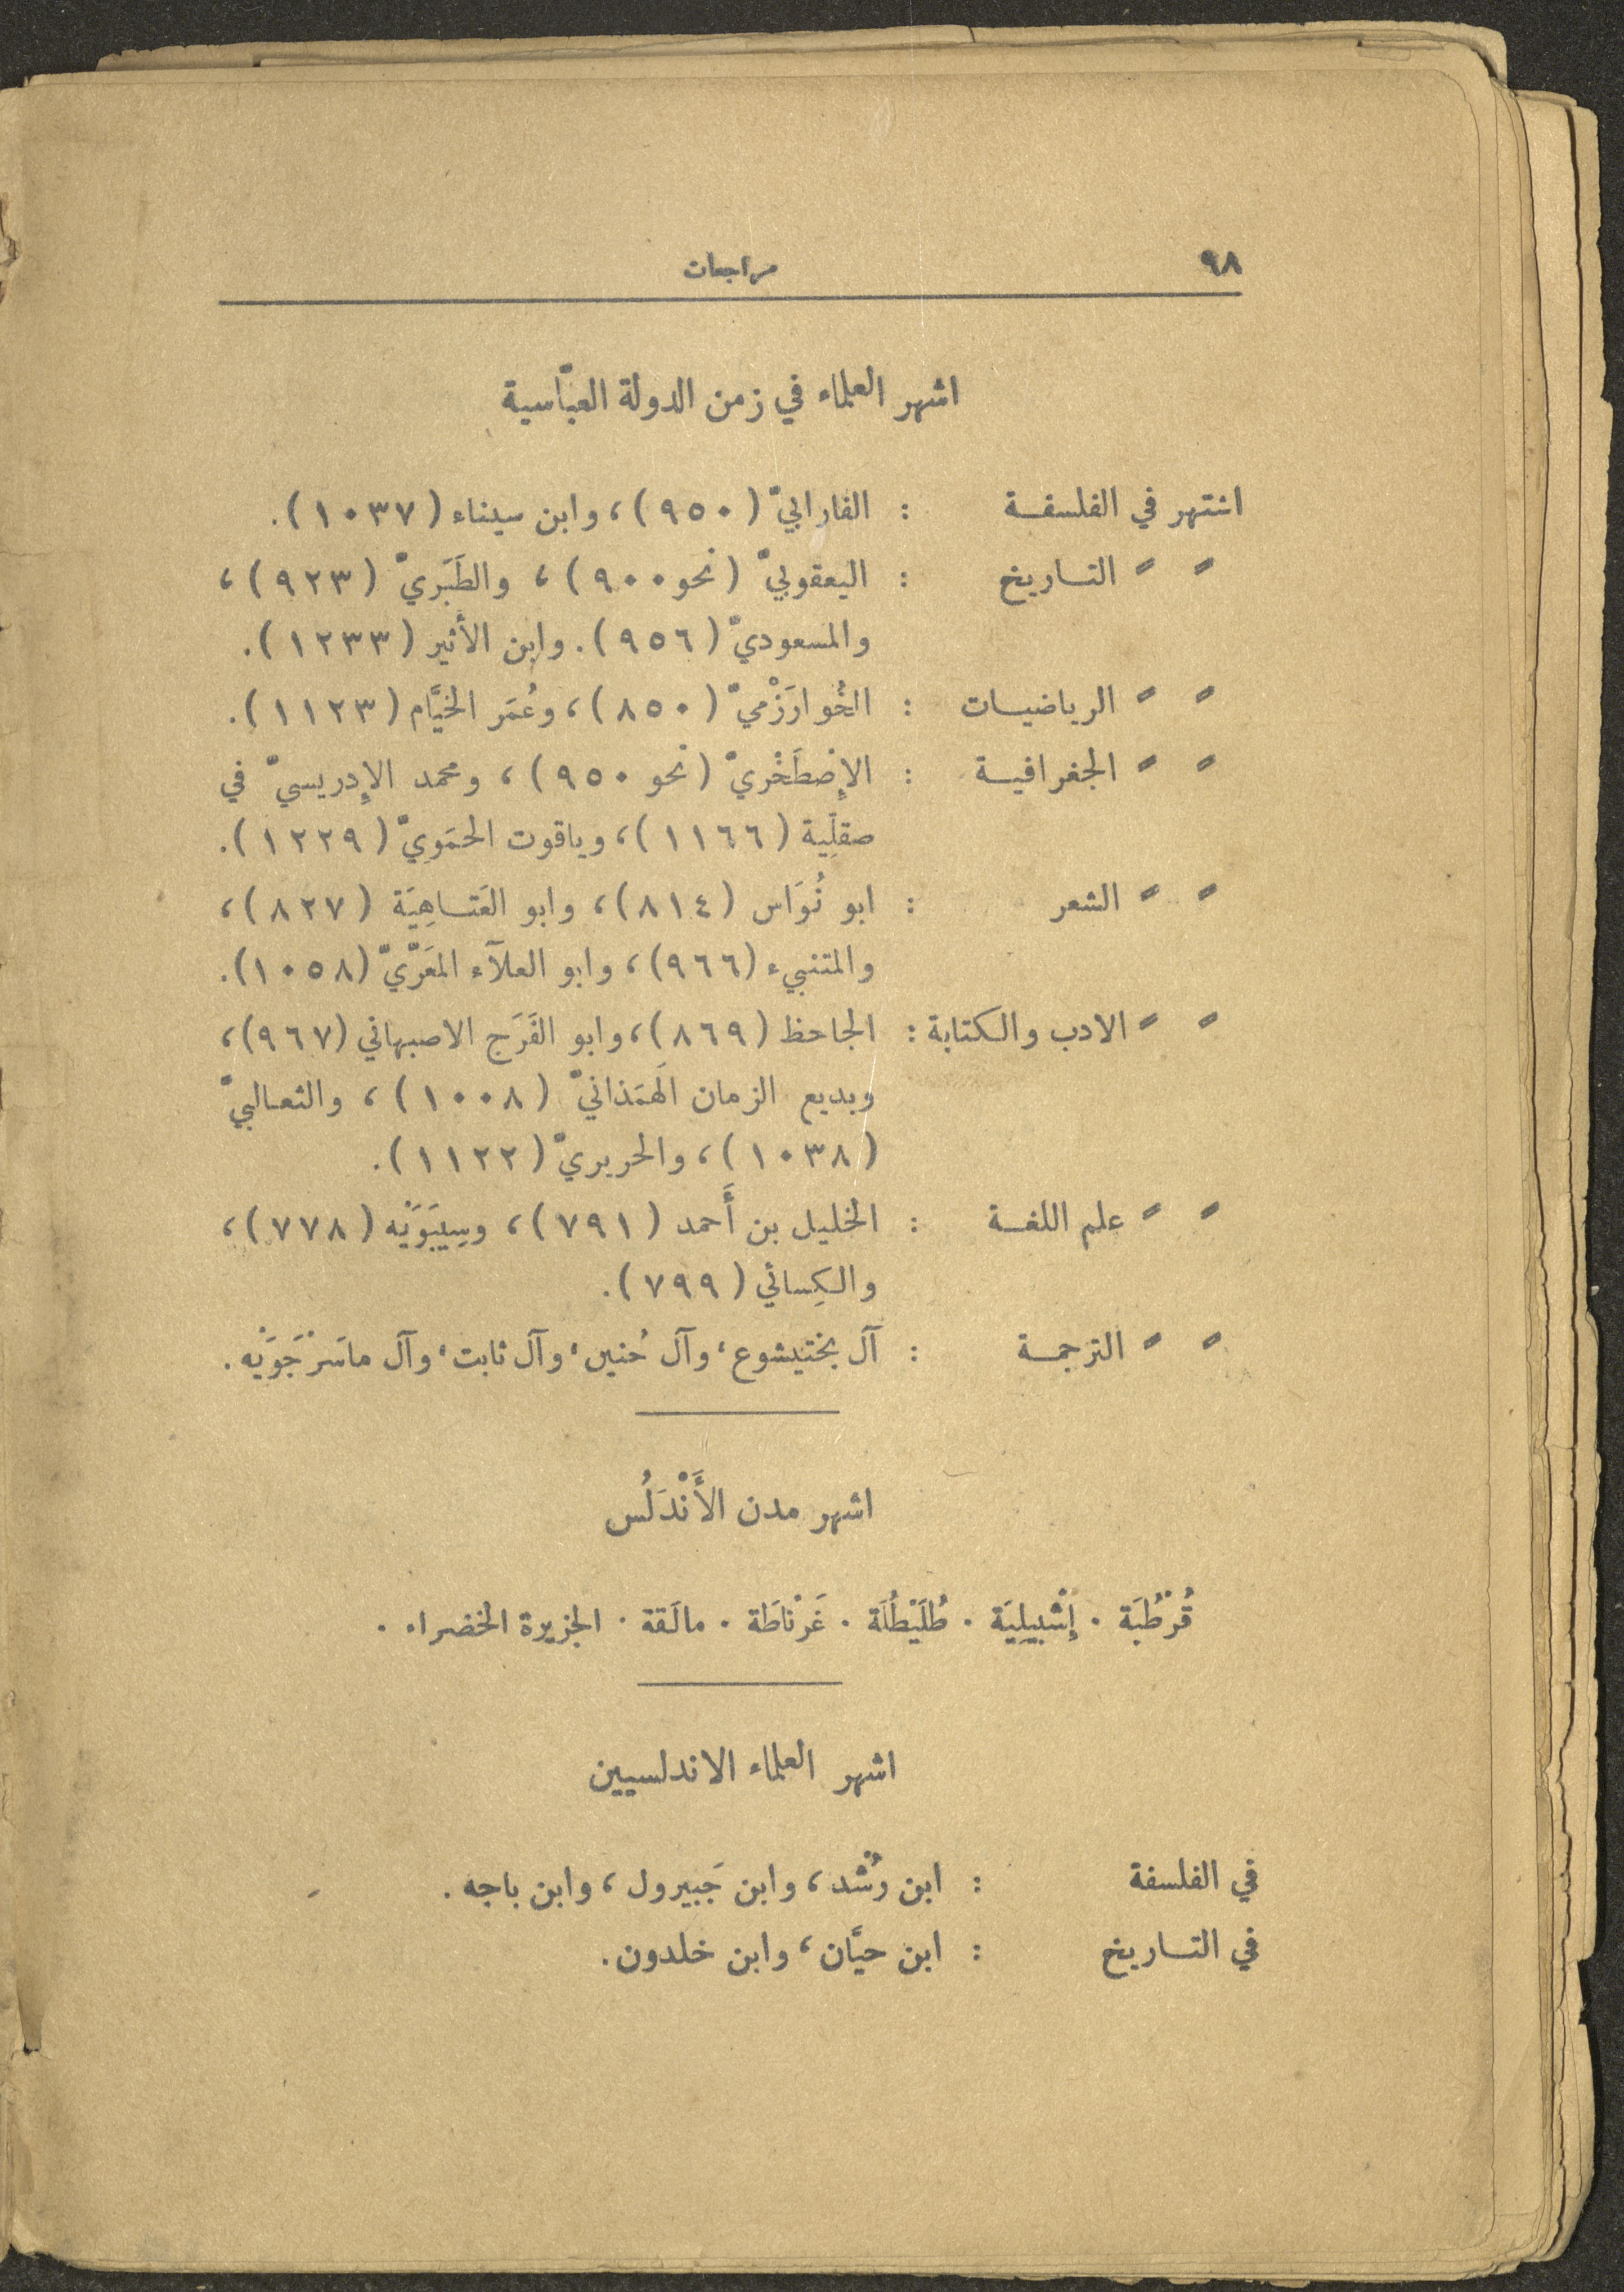 ٩٨ مراجعات
اشهر العلماء في زمن الدولة العبّاسية
اشتهر في الفلسفة : الفارابيّ (٩٥٠)، وابن سيناء (١٠٣٧).
〃 〃 التاريخ : اليعقوبيّ (نحو ٩٠٠)، والطَبَريّ (٩٢٣)،
والمسعوديّ (٩٥٦). وابن الأثير (١٢٣٣).
〃 〃 الرياضيات : الخُوارَزْميّ (٨٥٠)، وعُمَر الخيَّام (١١٢٣).
〃 〃 الجغرافية : الإِصْطَخْريّ (نحو ٩٥٠)، ومحمد الإدريسيّ في
صقلِّية (١١٦٦)، وياقوت الحمَوِيّ (١٢٢٩).
〃 〃 الشعر : ابو نُوَاس (٨١٤)، وابو العَتاهِيَة (٨٢٧)،
والمتنبيء (٩٦٦)، وابو العلآء المعَرّيّ (١٠٥٨).
〃 〃 الادب والكتابة : الجاحظ (٨٦٩)، وابو الفَرَج الاصبهاني (٩٦٧)،
وبديع الزمان الهَمَذانيّ (١٠٠٨)، والثعالبيّ
(١٠٣٨)، والحريريّ (١١٢٢).
〃 〃 علم اللغة : الخليل بن أَحمد (٧٩١)، وسِيبَوَيْه (٧٧٨)،
والكِسائي (٧٩٩).
〃 〃 الترجمة : آل بختيشوع، وآل حُنين، وآل ثابت، وآل ماسَرْجَوَيْه.
اشهر مدن الأَنْدَلُس
قُرْطُبَة . إِشْبيلِيَة . طُلَيْطُلَة . غَرْناطَة . مالَقة . الجزيرة الخضراء .
اشهر العلماء الاندلسيين
في الفلسفة : ابن رُشْد، وابن جَبيرول، وابن باجه .
في التاريخ : ابن حيَّان، وابن خلدون.